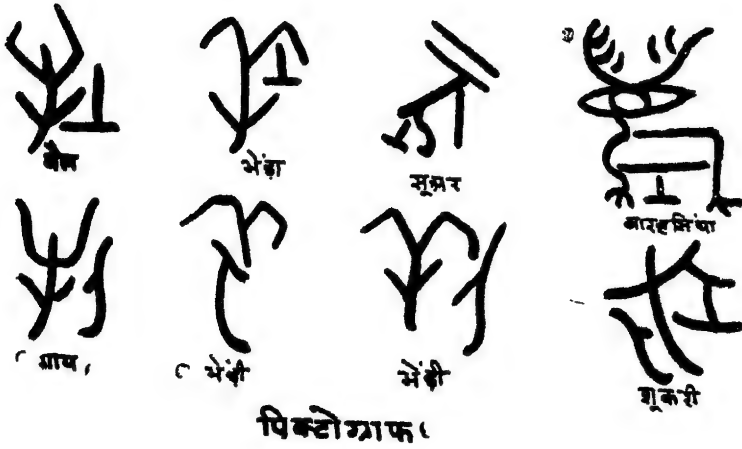 बैल भेंड़ा सूअर बारहसिंघा
गाय भेंड़ी भेंड़ी शूकरी
पिक्टोग्राफ